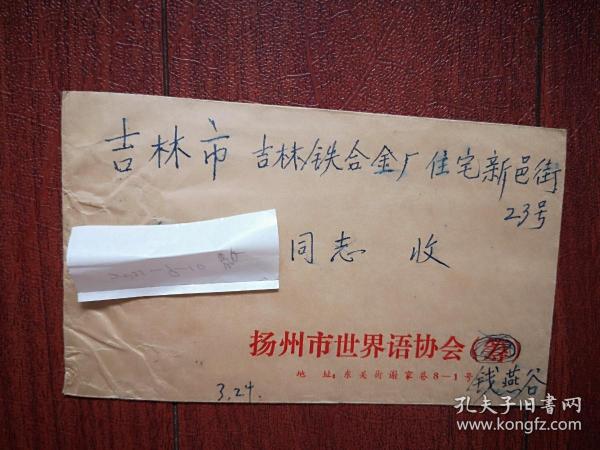 吉林市 吉林铁合金厂住宅新邑街
23号
同志 收
扬州市世界语协会(筹)
地 址:东关街谢家巷8-1号
钱燕谷
3.24.
孔夫子旧书网
www.kongfz.com